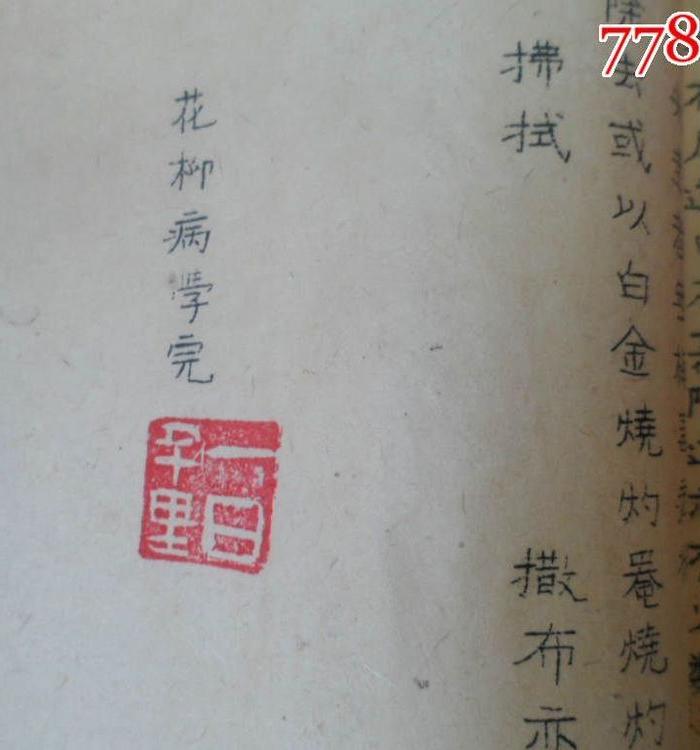 778
除去或以白金燒灼罨燒灼
拂拭
撒布亦
花柳病学完
一日千里